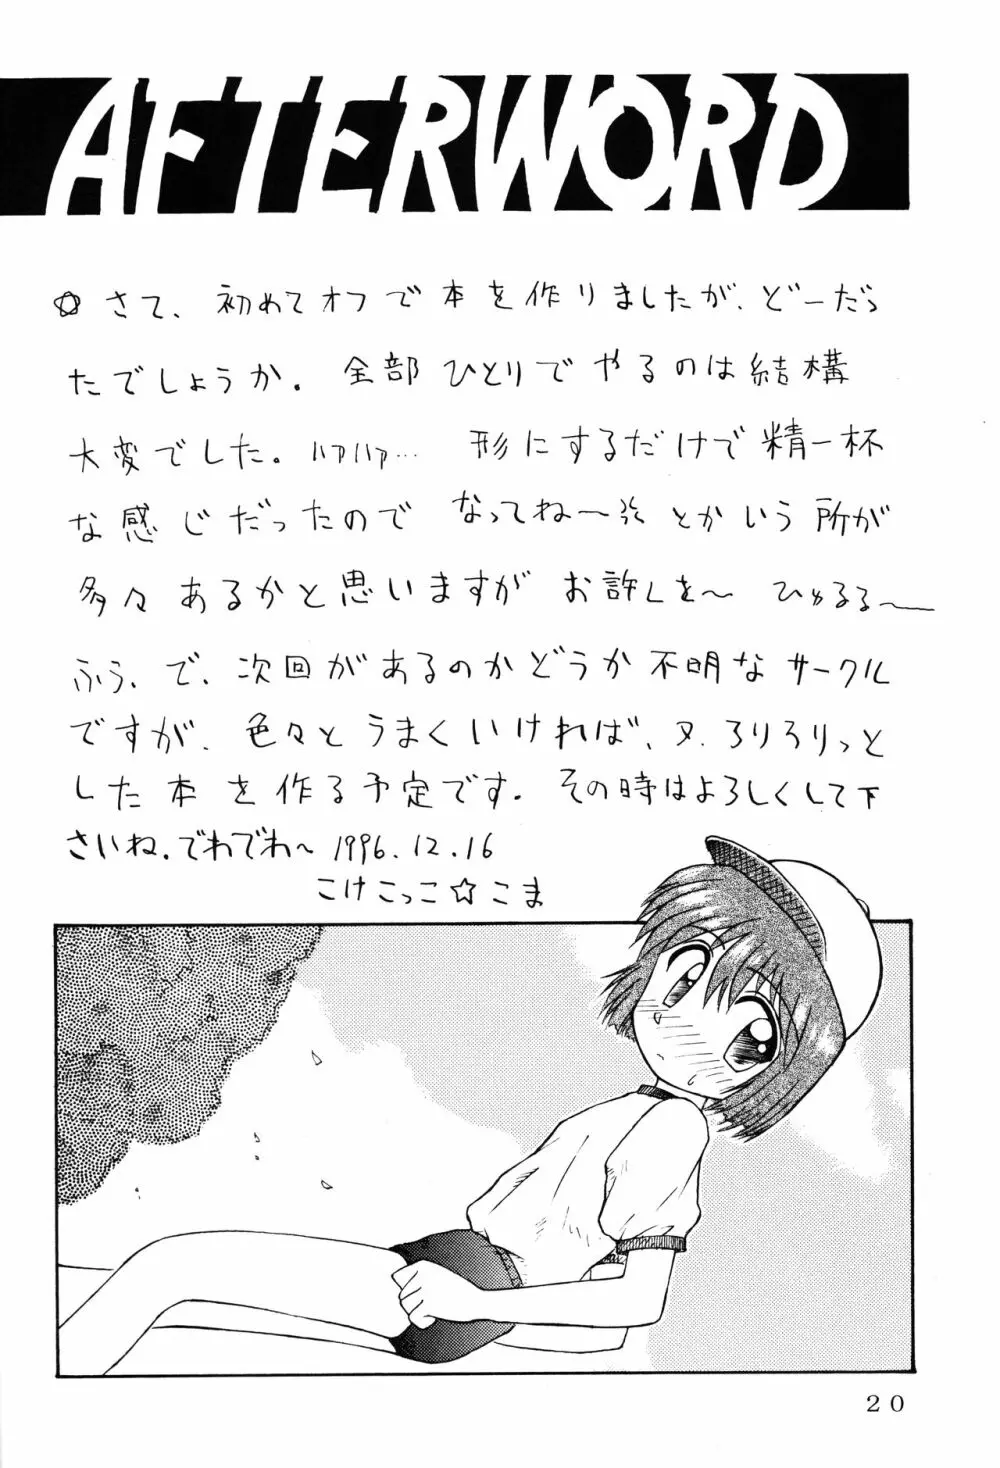 AFTERWORD
☆さて、初めてオフで本を作りましたが、どーだっ
たでしょうか。全部ひとりでやるのは結構
大変でした。ハァハァ… 形にするだけで精一杯
な感じだったので なってね〜ぞ とかいう所が
多々あるかと思いますが お許しを〜 ひゅるる〜
ふぅ、で、次回があるのかどうか不明なサークル
ですが、色々とうまくいければ、又、ろりろりっと
した本を作る予定です。その時はよろしくして下
さいね。でわでわ〜 1996.12.16
こけこっこ☆こま
20